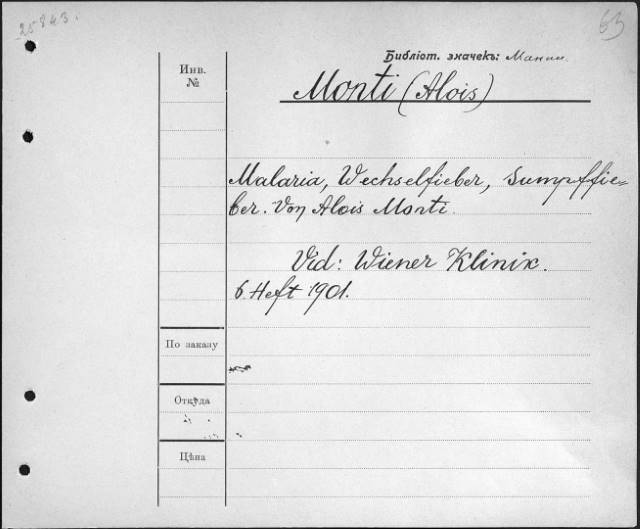 25843.
63
Библіот. значекъ:
Инв.
№
Monti (Alois)
Malaria, Wechselfieber, Sumpffie=
ber. Von Alois Monti.
Vid: Wiener Klinik.
6 Heft 1901.
По заказу
Откуда
Цѣна